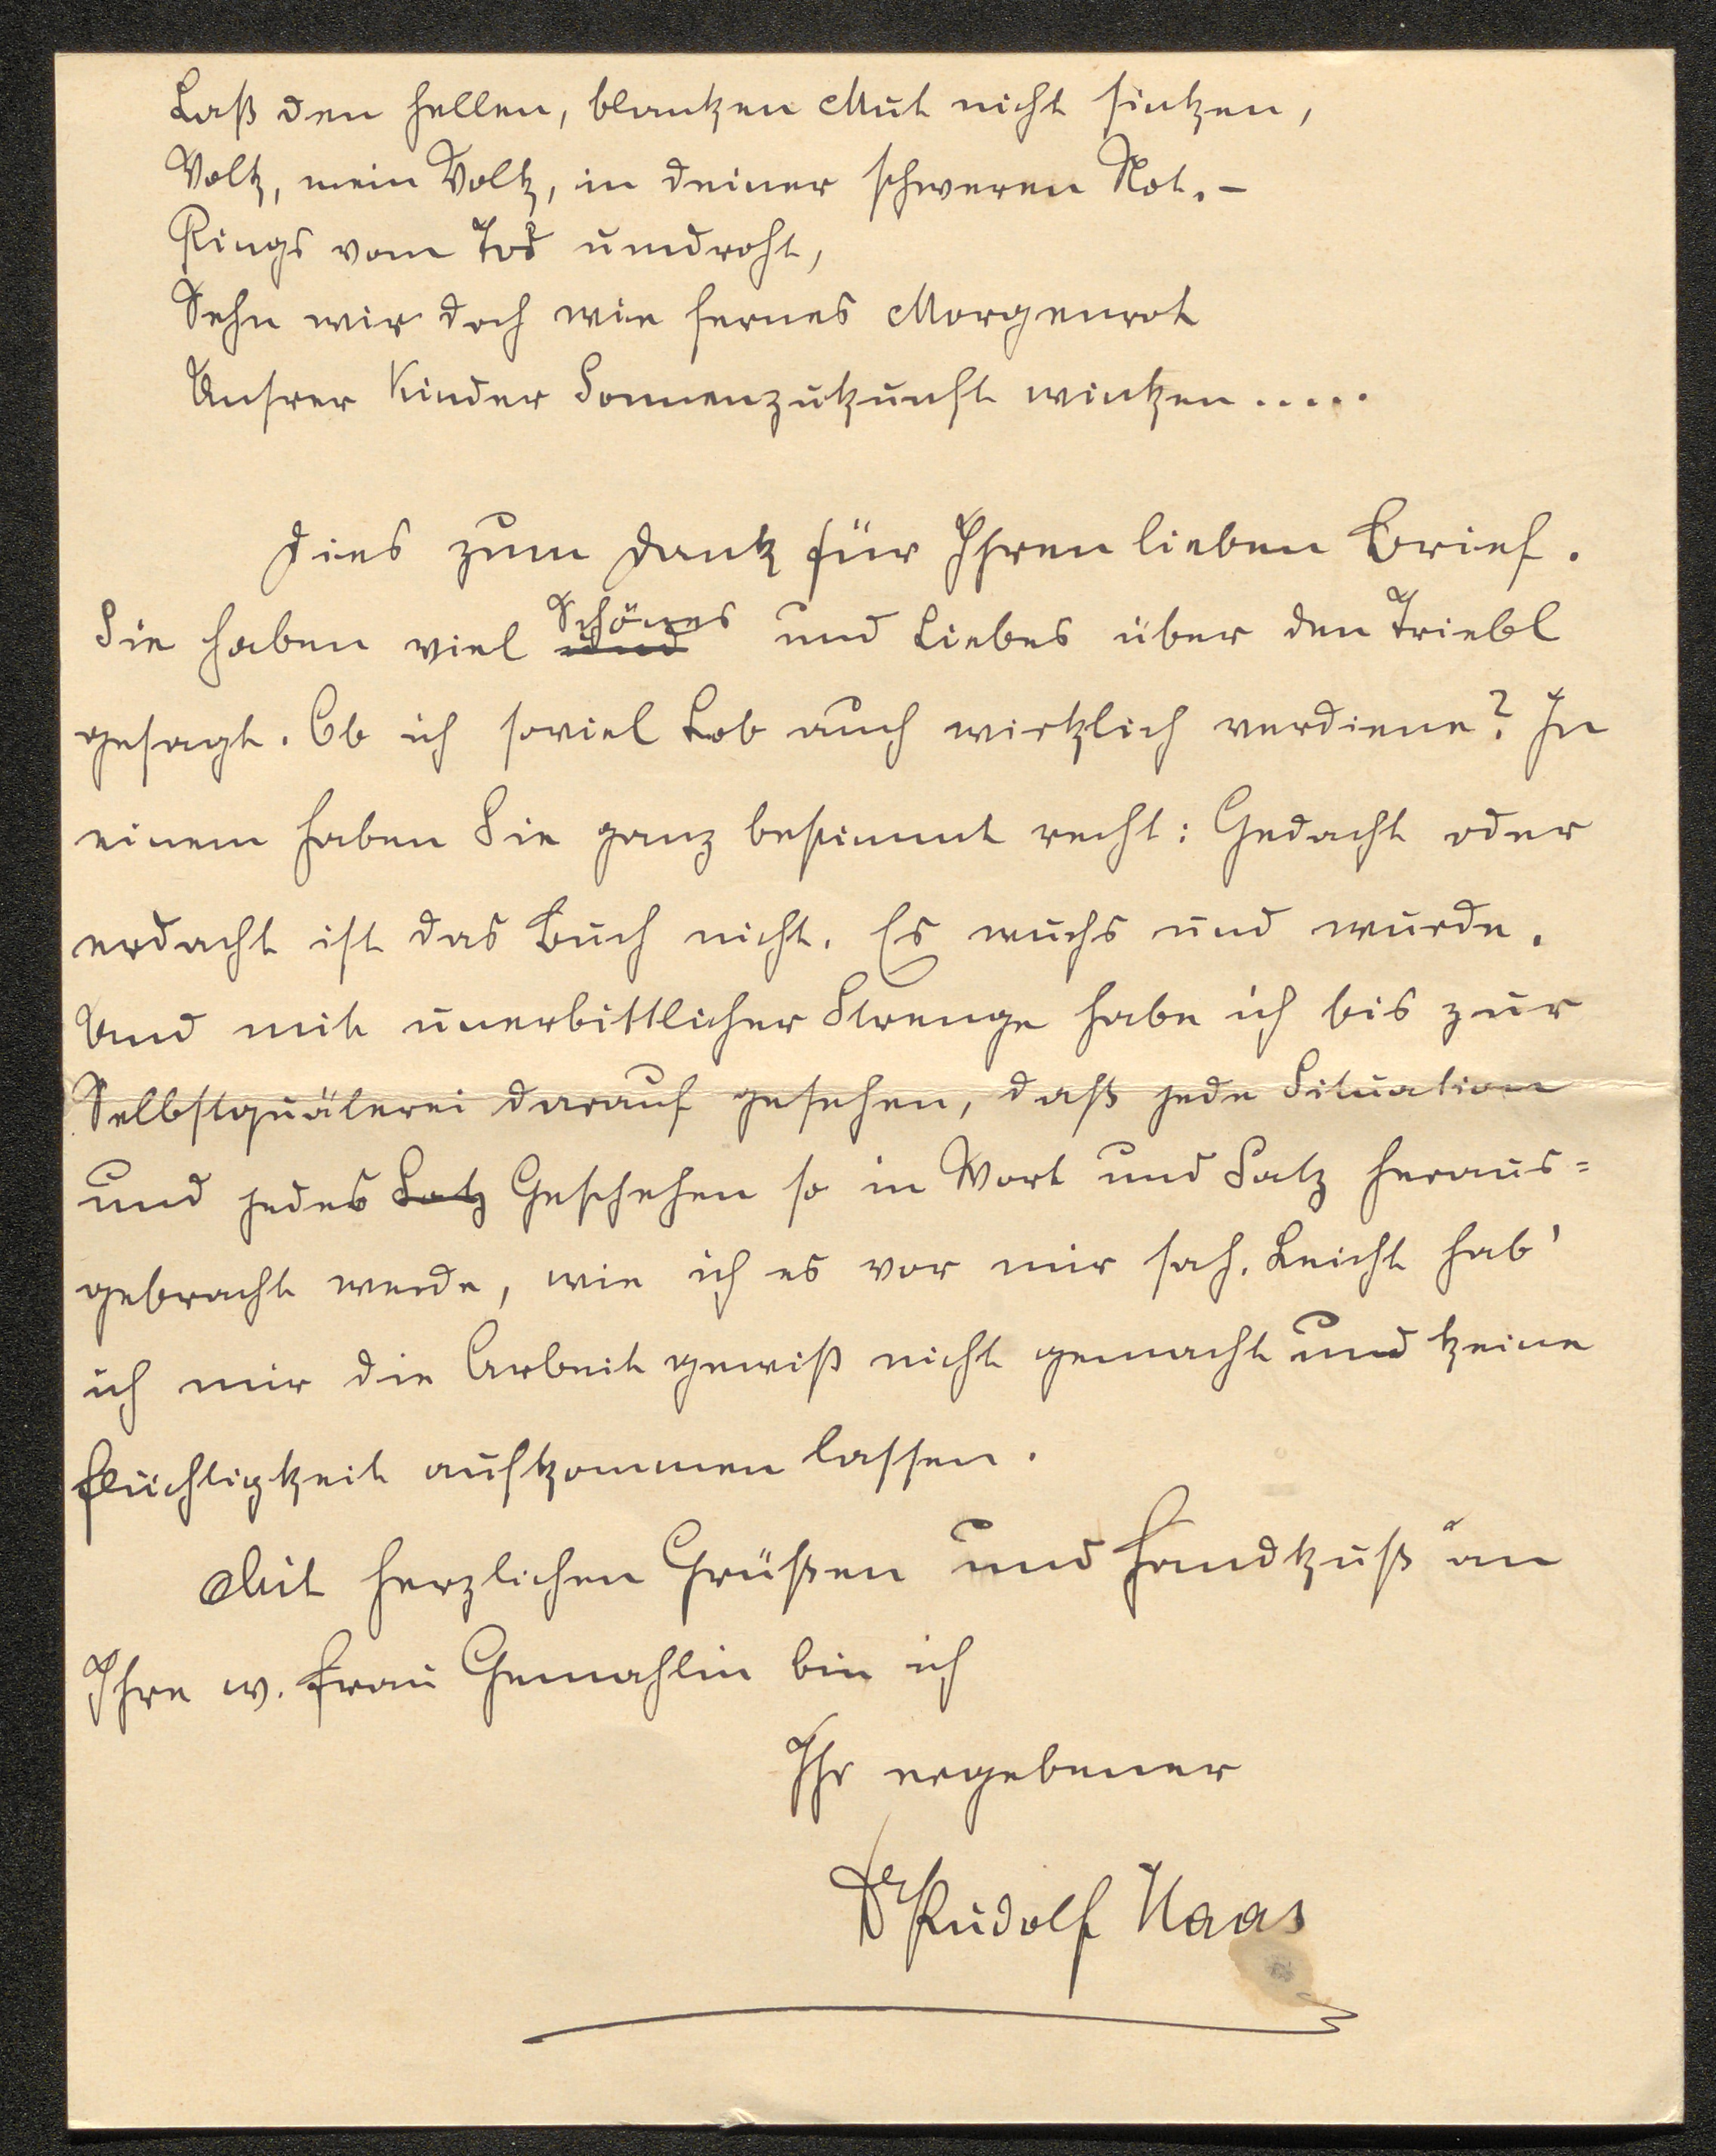 Laß den hellen, blanken Mut nicht sinken,
Volk, mein Volk, in deiner schweren Not. –
Rings vom Tod umdroht,
Sehn wir doch wie fernes Morgenrot
Unsrer Kinder Sonnenzukunft winken.....
Dies zum Dank für Ihren lieben Brief.
Sie haben viel und Schönes und Liebes über den Triebl
gesagt. Ob ich soviel Lob auch wirklich verdiene? In
einem haben Sie ganz bestimmt recht: Gedacht oder
erdacht ist das Buch nicht. Es wuchs und wurde.
Und mit unerbittlicher Strenge habe ich bis zur
Selbstquälerei darauf gesehen, daß jede Situation
und jedes Satz Geschehen so in Wort und Satz heraus=
gebracht werde, wie ich es vor mir sah. Leicht hab'
ich mir die Arbeit gewiß nicht gemacht und keine
Flüchtigkeit aufkommen lassen.
Mit herzlichen Grüßen und Handkuß an
Ihre w. Frau Gemahlin bin ich
Ihr ergebener
Dr Rudolf Haas